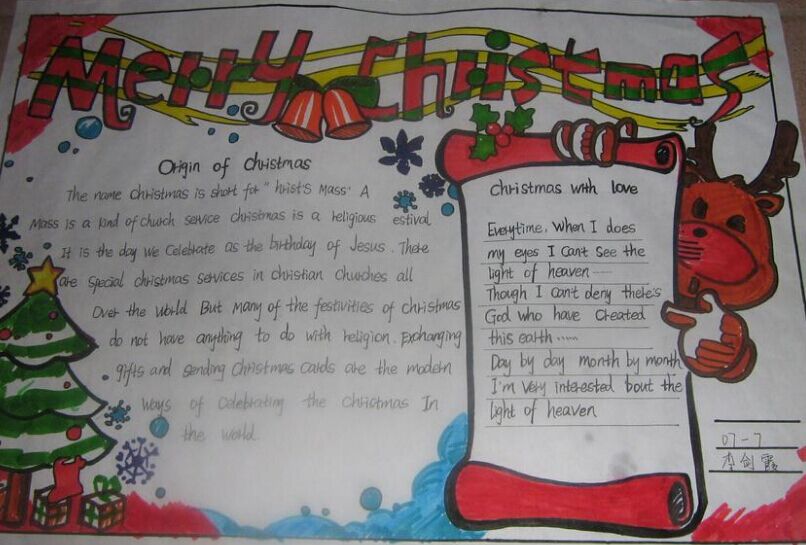 Merry Christmas
Origin of Christmas
The name Christmas is short for "hrist's Mass". A
Mass is a kind of church service christmas is a religious estival
It is the day we celebrate as the birthday of Jesus. There
are special christmas services in christian churches all
Over the world But many of the festivities of christmas
do not have anything to do with religion. Exchanging
gifts and sending Christmas Cards are the modern
ways of Celebrating the Christmas In
the world.
Christmas with love
Everytime, when I does
my eyes I can't see the
light of heaven ......
Though I can't deny there's
God who have created
this earth ......
Day by day month by month
I'm very interested bout the
light of heaven
07-7
李剑霞